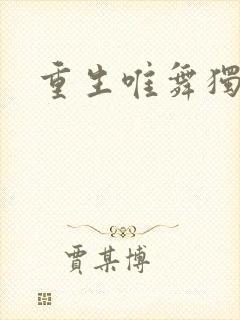 重生唯舞獨
賈某博